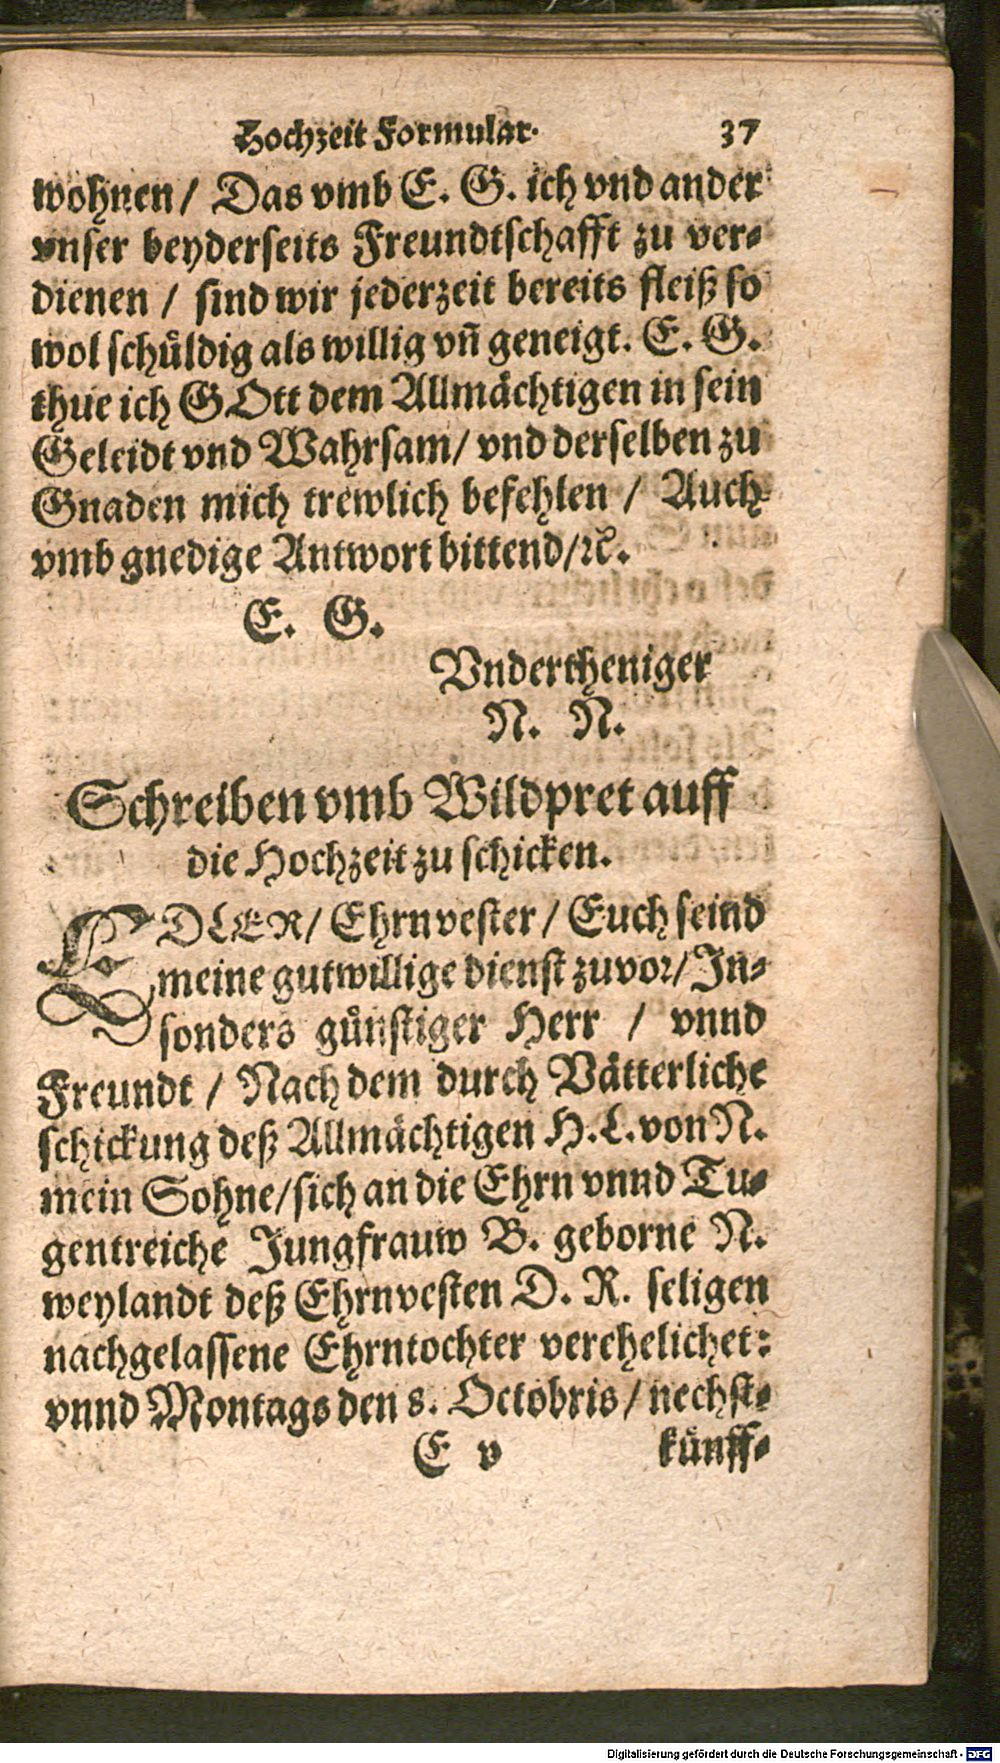 Hochzeit Formular. 37
wohnen / Das vmb E. G. ich vnd ander
vnser beyderseits Freundtschafft zu ver⸗
dienen / sind wir jederzeit bereits fleiß so
wol schuͤldig als willig vñ geneigt. E. G.
thue ich GOtt dem Allmaͤchtigen in sein
Geleidt vnd Wahrsam/ vnd derselben zu
Gnaden mich trewlich befehlen / Auch
vmb gnedige Antwort bittend/ꝛc.
E. G.
Vndertheniger
N. N.
Schreiben vmb Wildpret auff
die Hochzeit zu schicken.
EDLER/ Ehrnvester/ Euch seind
meine gutwillige dienst zuvor/ In⸗
sonders guͤnstiger Herr / vnnd
Freundt / Nach dem durch Vaͤtterliche
schickung deß Allmaͤchtigen H. L. von N.
mein Sohne/ sich an die Ehrn vnnd Tu⸗
gentreiche Jungfrauw B. geborne N.
weylandt deß Ehrnvesten D. R. seligen
nachgelassene Ehrntochter verehelichet:
vnnd Montags den 8. Octobris / nechst⸗
E v kuͤnff⸗
Digitalisierung gefördert durch die Deutsche Forschungsgemeinschaft - DFG